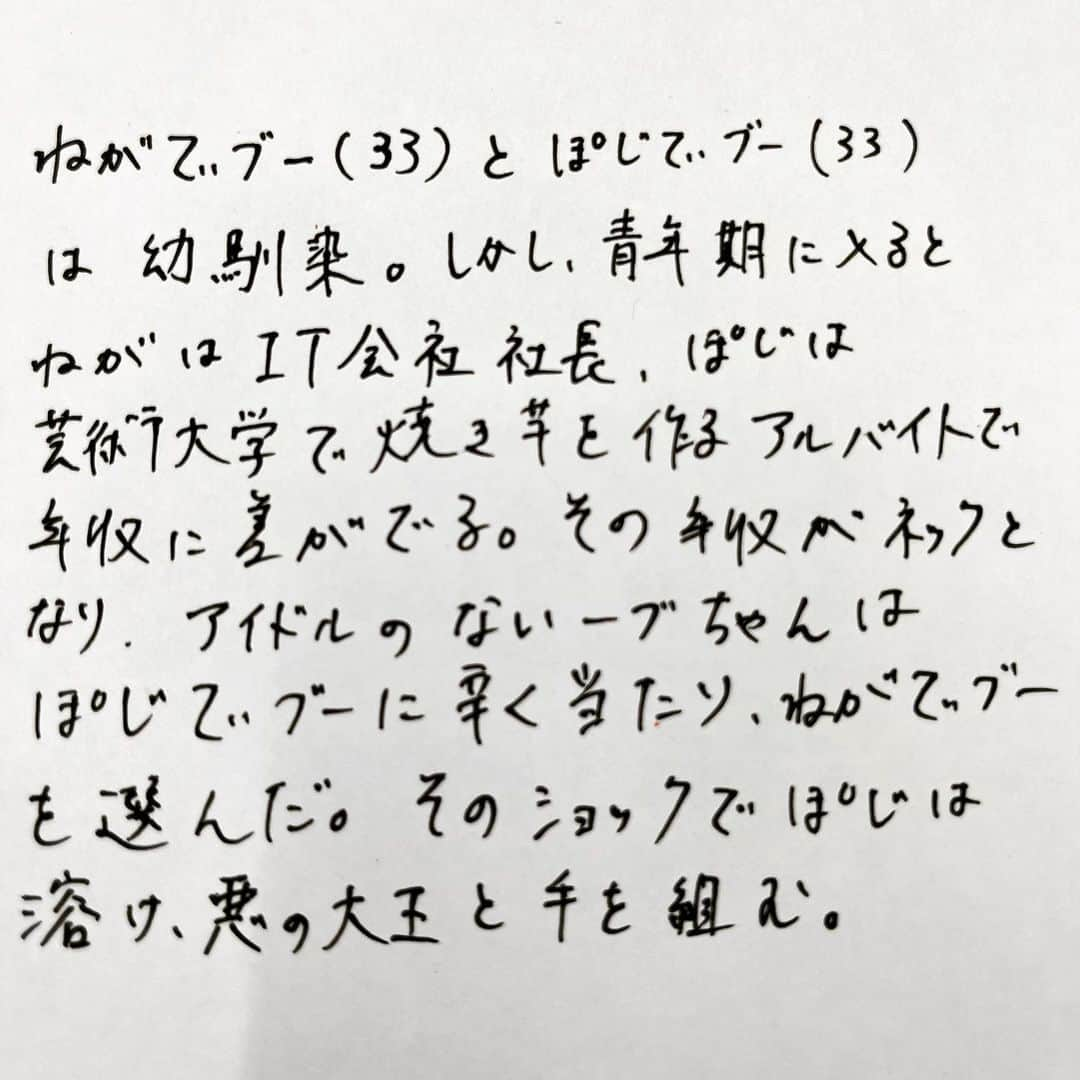 ねがてぃブー(33)とぽじてぃブー(33)
は 幼馴染。しかし、青年期に入ると
ねがはIT会社社長、ぽじは
芸術大学で焼き芋を作るアルバイトで
年収に差がでる。その年収がネックと
なり、アイドルのないーブちゃんは
ぽじてぃブーに辛く当たり、ねがてぃブー
を選んだ。そのショックでぽじは
溶け、悪の大王と手を組む。